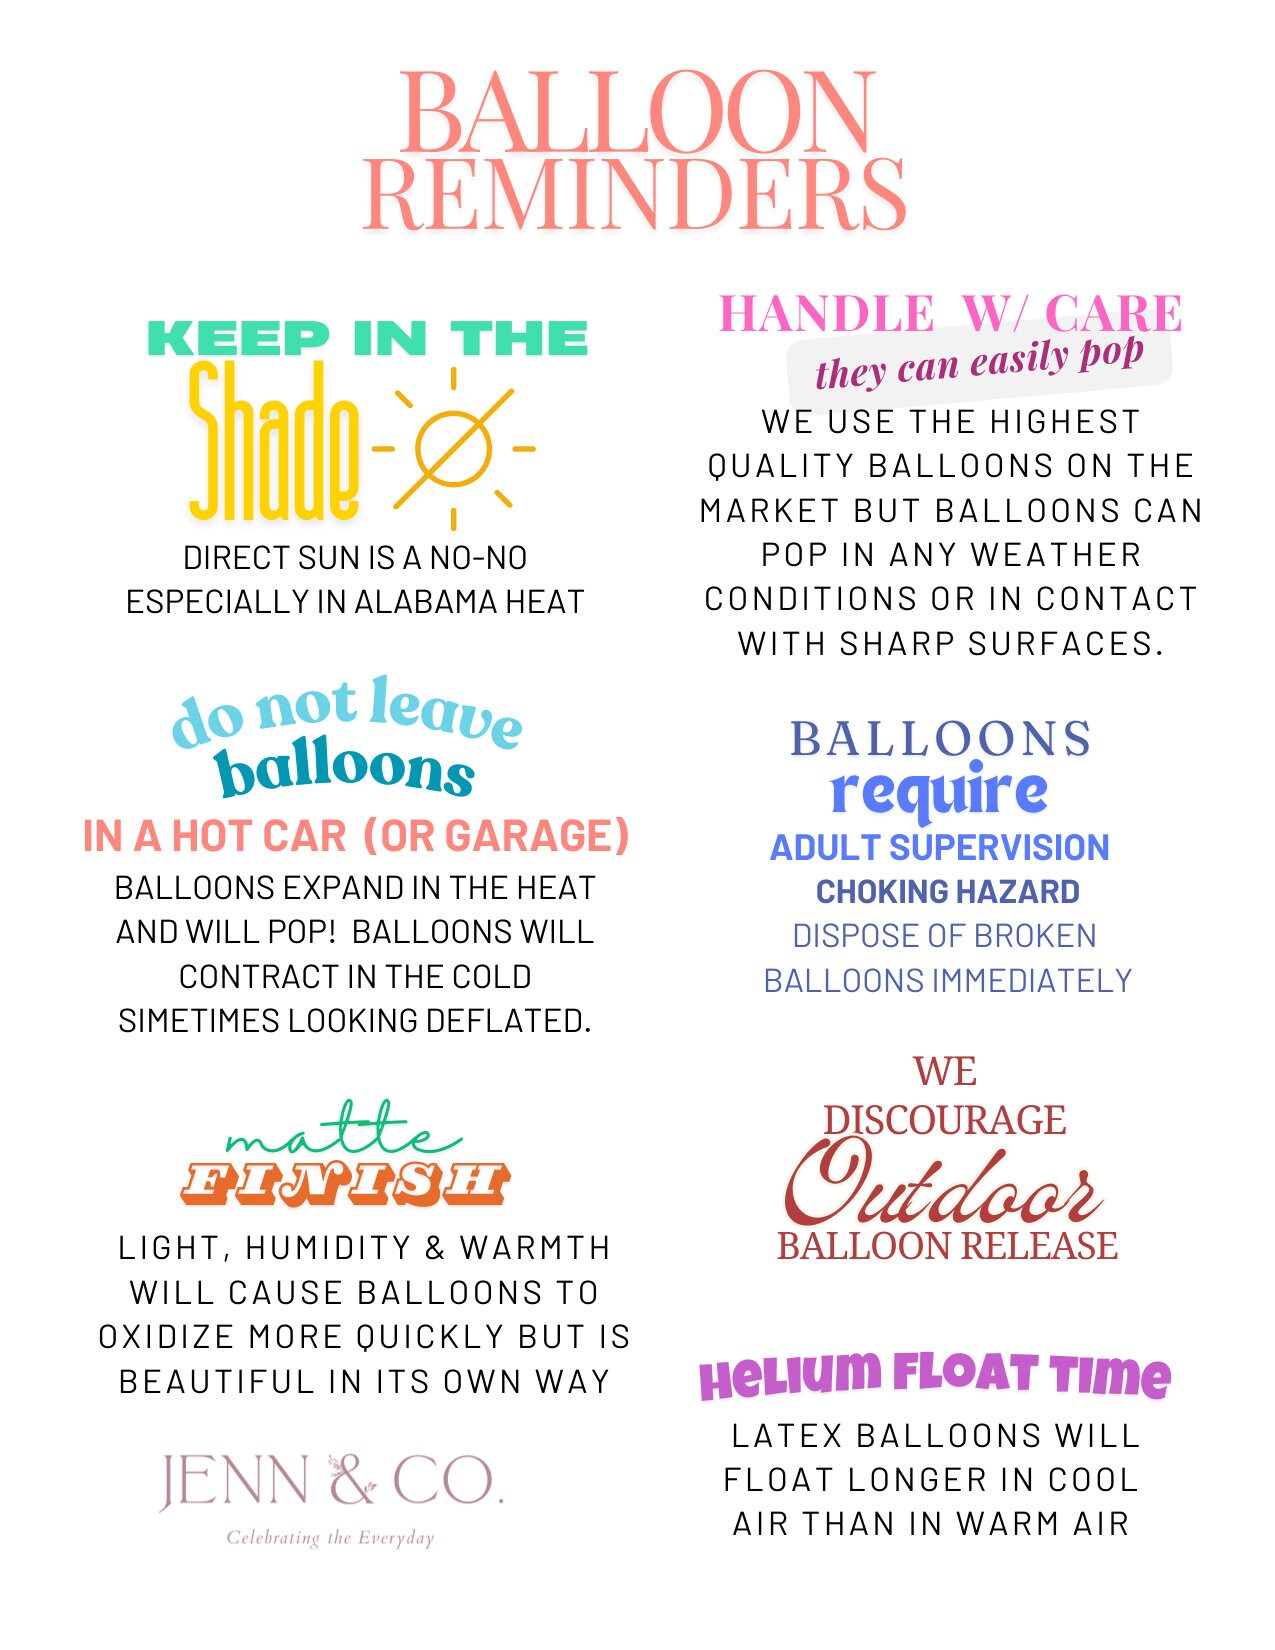 BALLOON
REMINDERS
KEEP IN THE
Shade
DIRECT SUN IS A NO-NO
ESPECIALLY IN ALABAMA HEAT
do not leave
balloons
IN A HOT CAR (OR GARAGE)
BALLOONS EXPAND IN THE HEAT
AND WILL POP! BALLOONS WILL
CONTRACT IN THE COLD
SIMETIMES LOOKING DEFLATED.
matte
FINISH
LIGHT, HUMIDITY & WARMTH
WILL CAUSE BALLOONS TO
OXIDIZE MORE QUICKLY BUT IS
BEAUTIFUL IN ITS OWN WAY
JENN & CO.
Celebrating the Everyday
HANDLE W/ CARE
they can easily pop
WE USE THE HIGHEST
QUALITY BALLOONS ON THE
MARKET BUT BALLOONS CAN
POP IN ANY WEATHER
CONDITIONS OR IN CONTACT
WITH SHARP SURFACES.
BALLOONS
require
ADULT SUPERVISION
CHOKING HAZARD
DISPOSE OF BROKEN
BALLOONS IMMEDIATELY
WE
DISCOURAGE
Outdoor
BALLOON RELEASE
HeLIUm FLOAT TIme
LATEX BALLOONS WILL
FLOAT LONGER IN COOL
AIR THAN IN WARM AIR